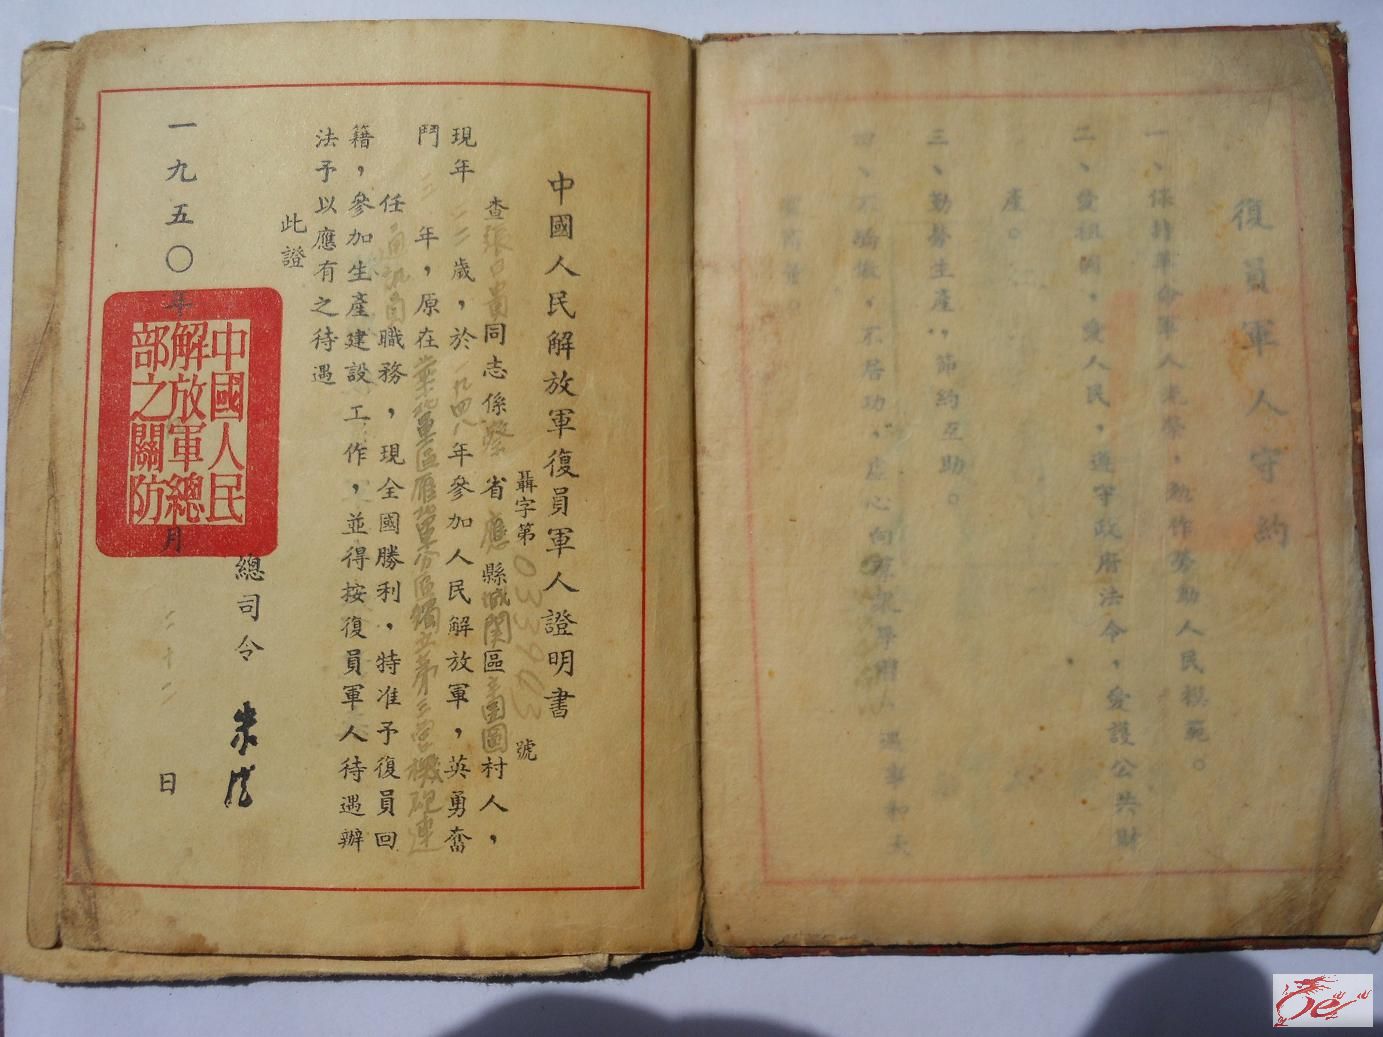 中國人民解放軍復員軍人證明書
聶字第 號
查張 同志係察省應縣城關區 村人，
現年二二歲，於一九四八年參加人民解放軍，英勇奮
鬥三年，原在華北軍區雁 軍分區獨立第三營機砲連
任 職務，現全國勝利，特准予復員回
籍，參加生產建設工作，並得按復員軍人待遇辦
法予以應有之待遇
此證
總司令 朱德
一九五〇年 月二十二日
中國人民解放軍總部之關防
復員軍人守約
一、保持革命軍人光榮，勤作勞動人民模範。
二、愛祖國，愛人民，遵守政府法令，愛護公共財
產。
三、勤勞生產，節約互助。
四、不驕傲，不居功，虛心向群眾學習，遇事和大